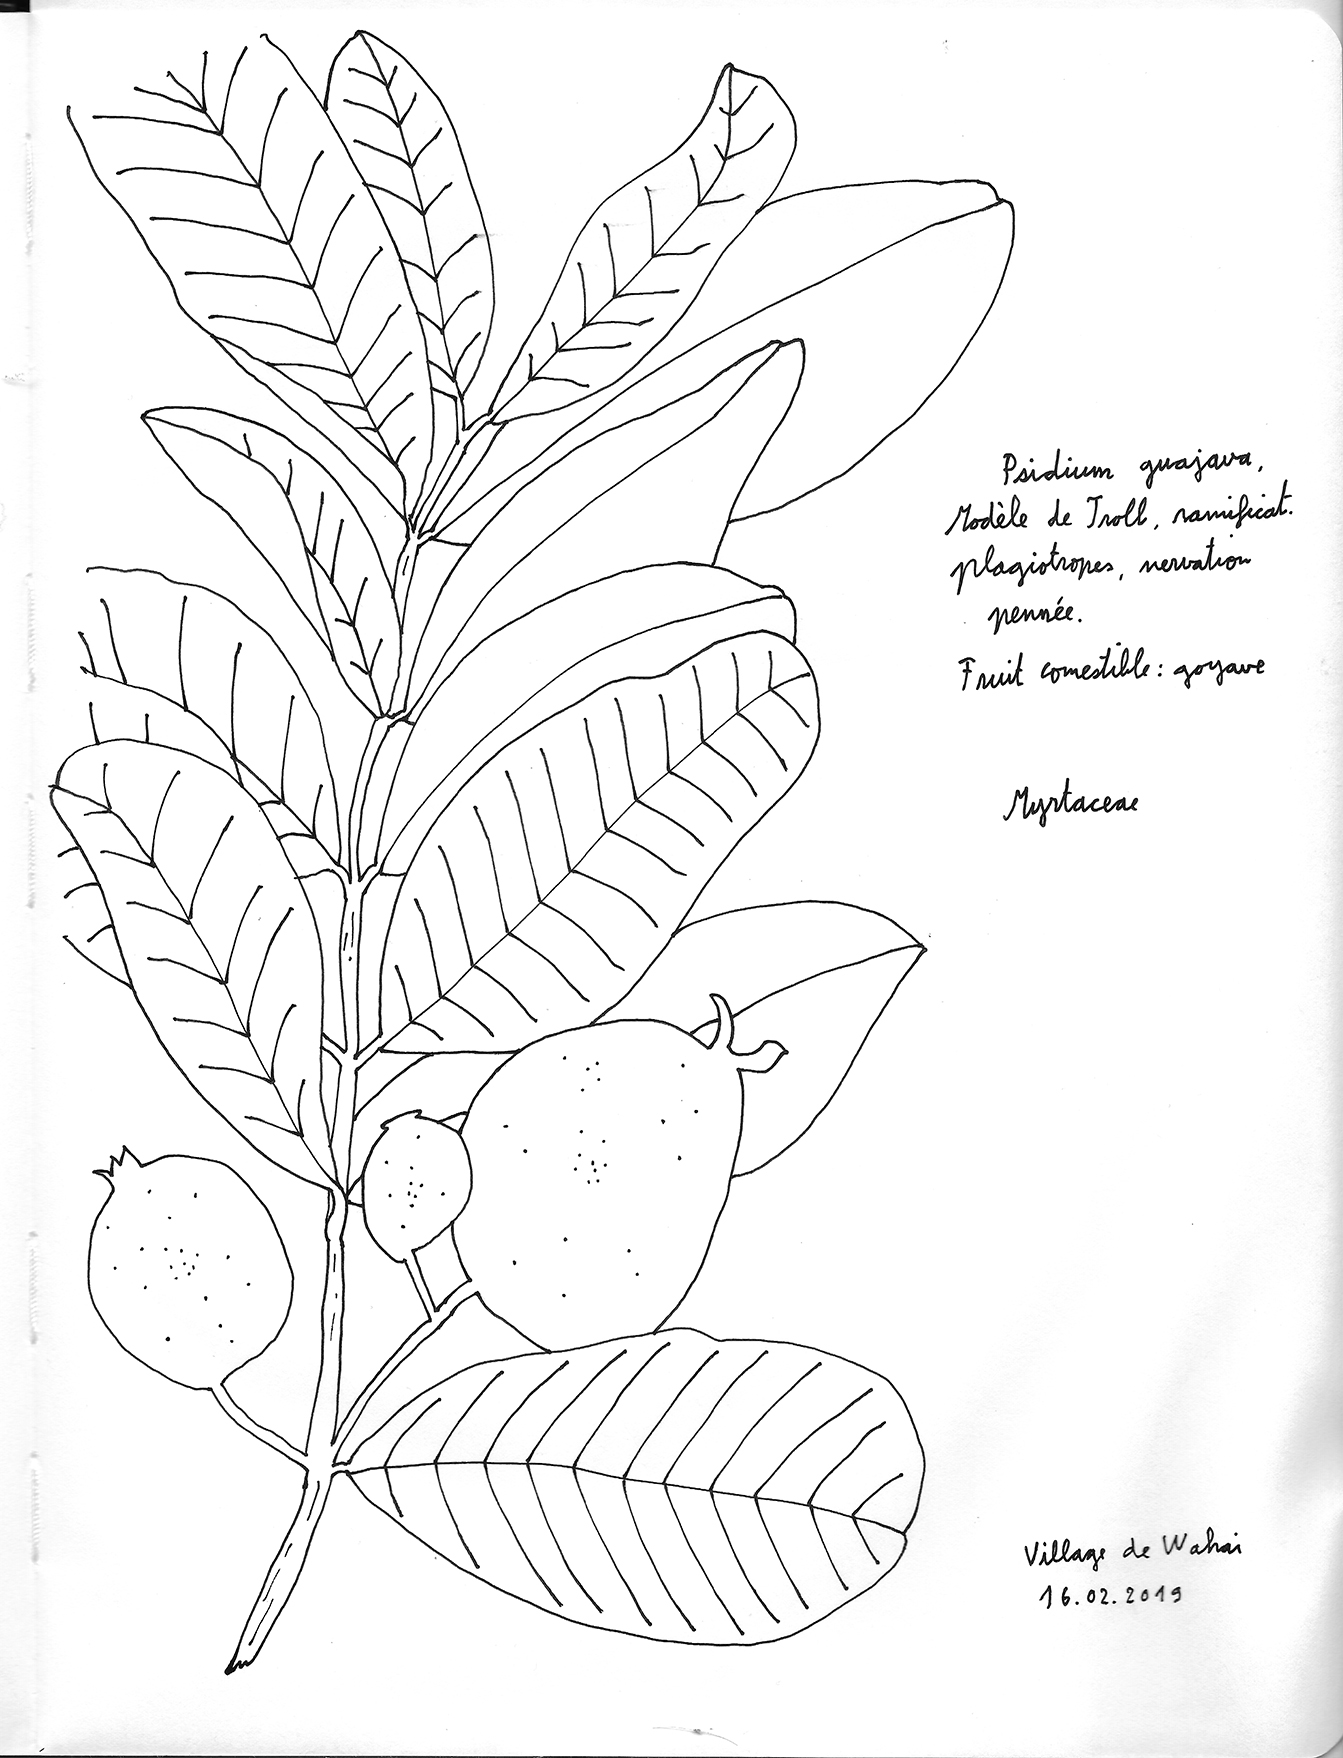 Psidium guajava,
Modèle de Troll, ramificat.
plagiotropes, nervation
pennée.
Fruit comestible : goyave
Myrtaceae
Village de Wahai
16.02.2019